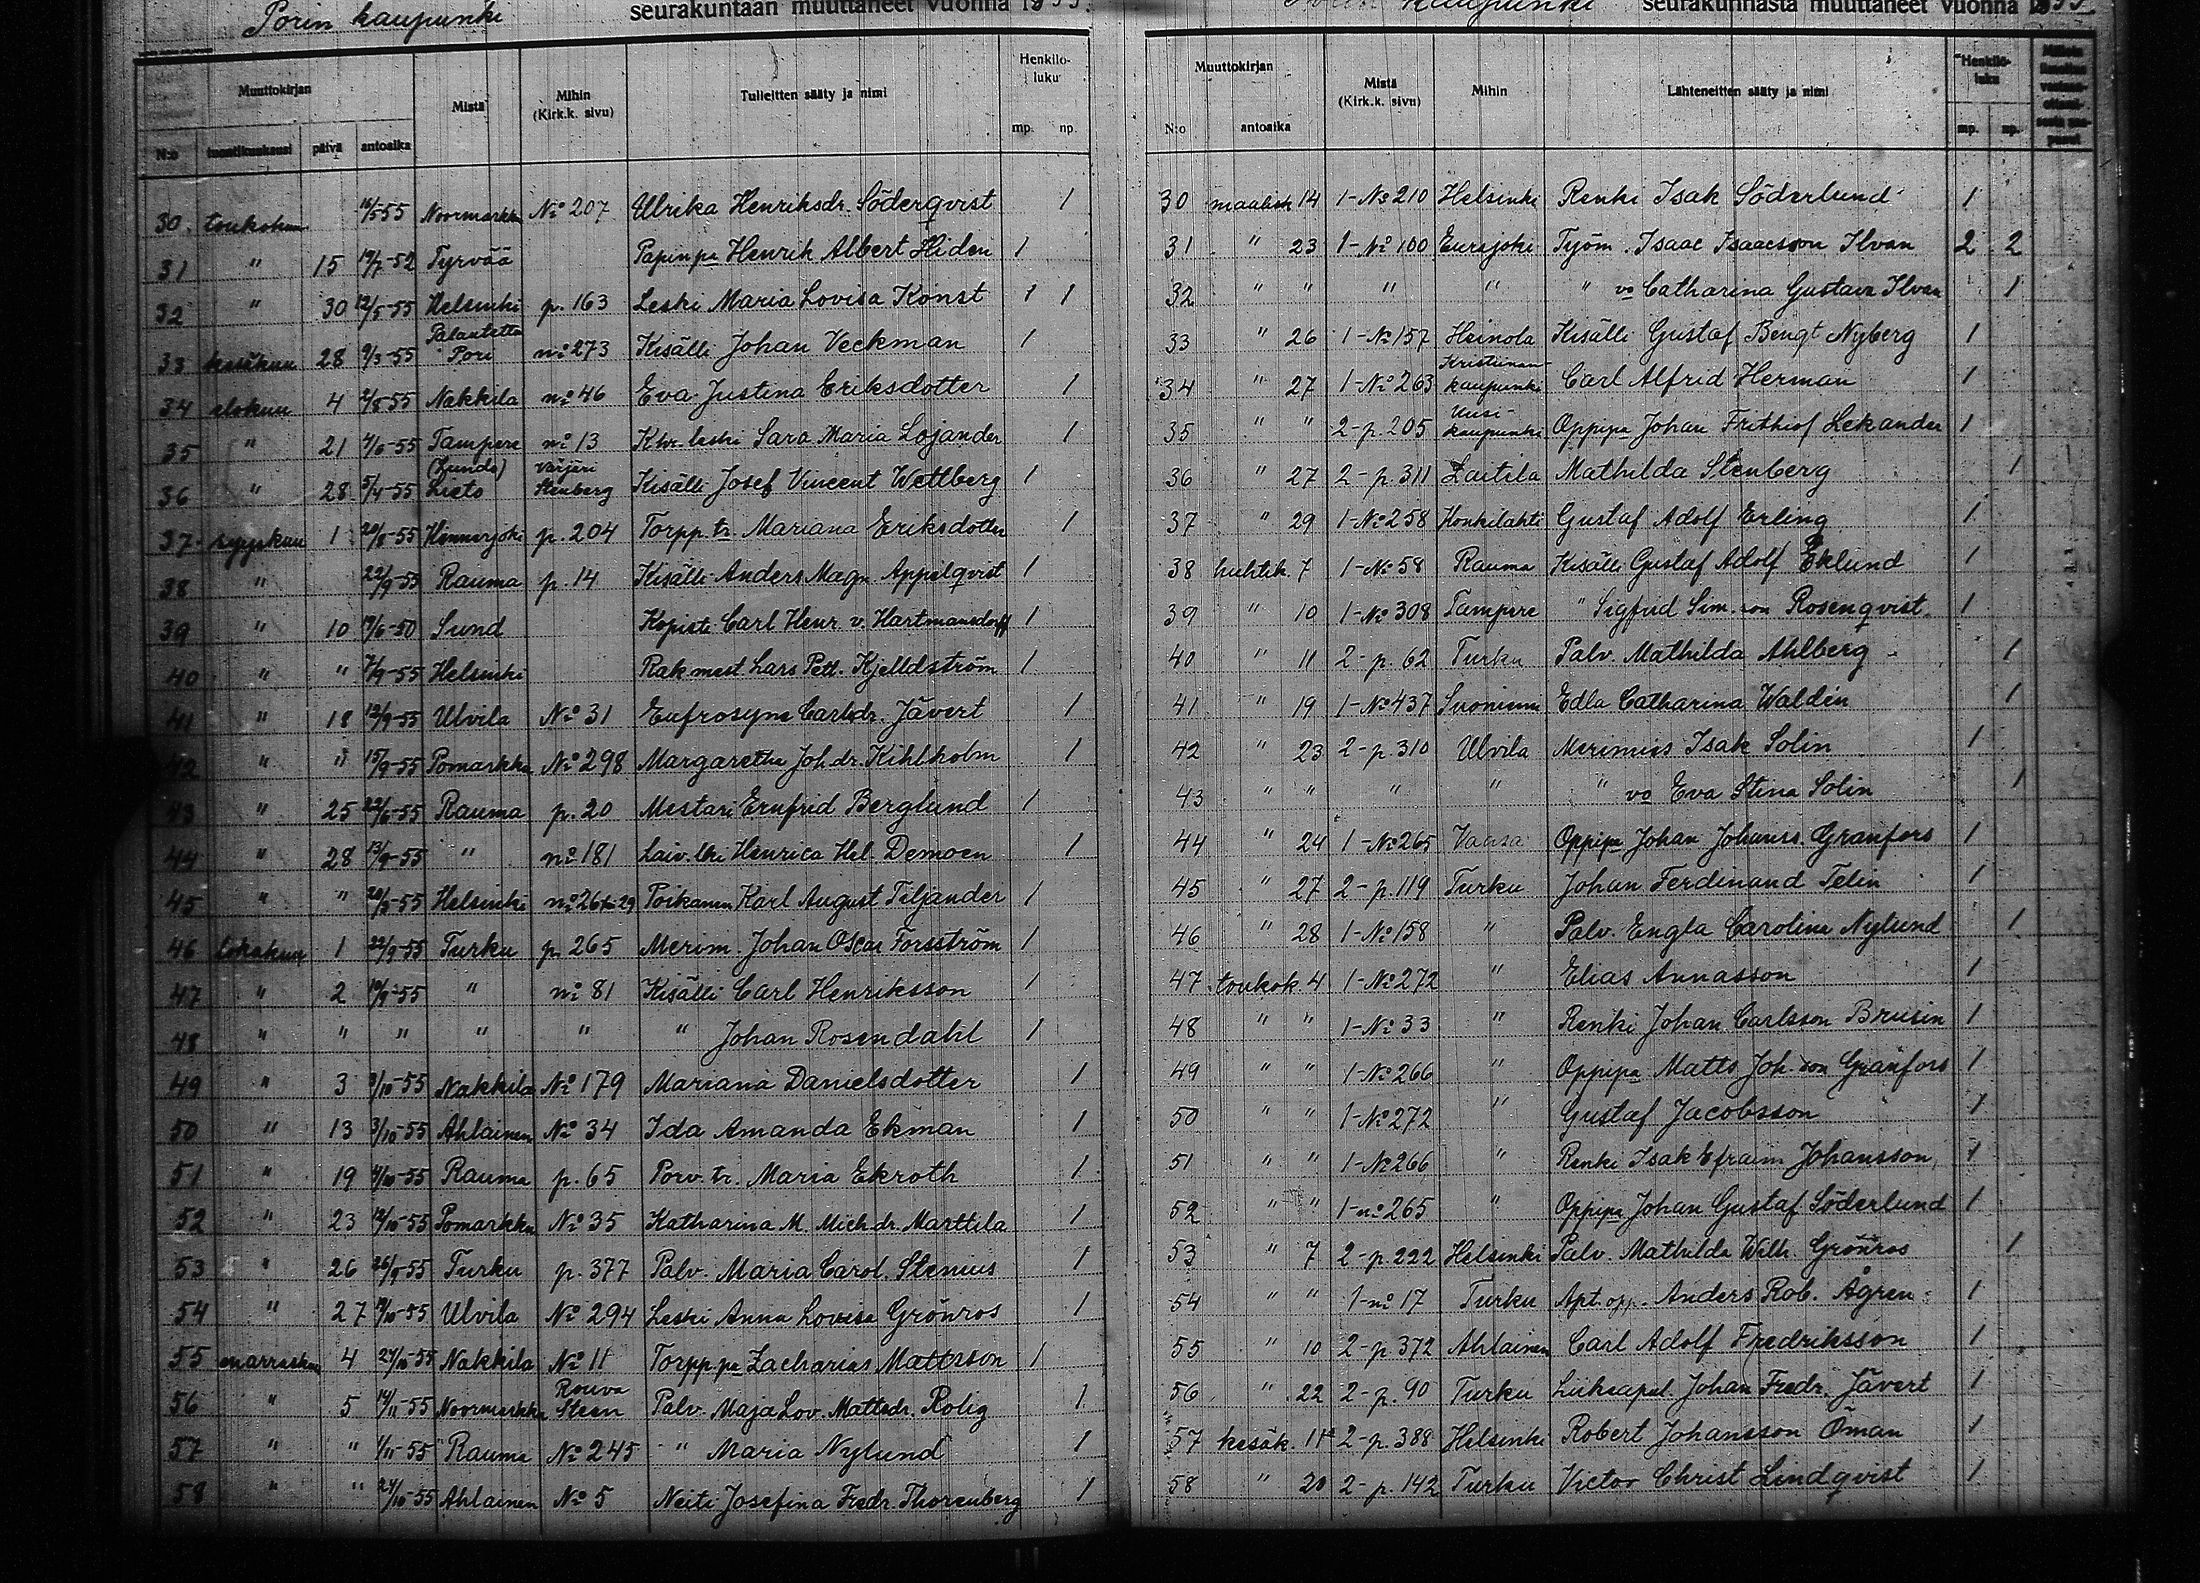 Porin kaupunki seurakuntaan muuttaneet vuonna 1955.
Muuttokirjan
Mistä
Mihin (Kirk.k. sivu)
Tulleitten sääty ja nimi
Henkilöluku
N:o tuontikuukausi päivä antoaika mp. np.
30. toukokuu 16/5 55 Noormarkku No 207 Ulrika Henriksdr. Söderqvist 1
31 " 15 19/7-52 Tyrvää Papinpa Henrik Albert Hiden 1
32 " 30 12/5-55 Helsinki p. 163 Leski Maria Lovisa Konst 1 1
33 kesäkuu 28 9/3-55 Palautettu Pori no 273 Kisälli Johan Veckman 1
34 elokuu 4 2/8 55 Nakkila no 46 Eva Justina Eriksdotter 1
35 " 21 4/6-55 Tampere no 13 Khr. leski Sara Maria Lojander 1
36 " 28 5/4-55 (Lunda) Lieto värjäri Stenberg Kisälli Josef Vincent Wettberg 1
37. syyskuu 1 20/8-55 Hinnerjoki p. 204 Torpp. tr. Mariana Eriksdotter 1
38 " 22/9-55 Rauma p. 14 Kisälli Anders Magn. Appelqvist 1
39 " 10 19/6-50 Sund Kopisti Carl Henr. v. Hartmansdorff 1
40 " " 7/9-55 Helsinki Rak mest Lars Pett. Kjelldström 1
41 " 18 12/9-55 Ulvila No 31 Eufrosyne Carlsdr. Jävert 1
42 " " 15/9-55 Pomarkku No 298 Margaretha Joh. dr. Kihlholm 1
43 " 25 22/6-55 Rauma p. 20 Mestari Ernfrid Berglund 1
44 " 28 13/9-55 " no 181 Laiv. lki Henrica Hel. Demoen 1
45 " " 20/9-55 Helsinki no 261-29 Poikanen Karl August Tiljander 1
46 lokakuu 1 22/9-55 Turku p. 265 Merim. Johan Oscar Forsström 1
47 " 2 10/9-55 " no 81 Kisälli Carl Henriksson 1
48 " " " " " " Johan Rosendahl 1
49 " 3 3/10-55 Nakkila No 179 Mariana Danielsdotter 1
50 " 13 3/10-55 Ahlainen No 34 Ida Amanda Ekman 1
51 " 19 4/10-55 Rauma p. 65 Porv. tr. Maria Ekroth 1
52 " 23 12/10-55 Pomarkku No 35 Katharina M. Mich. dr. Marttila 1
53 " 26 26/9 55 Turku p. 377 Palv. Maria Carol. Stenius 1
54 " 27 19/10-55 Ulvila No 294 Leski Anna Lovisa Grönros 1
55 marraskuu 4 27/10-55 Nakkila No 11 Torpp. pa Zacharias Mattsson 1
56 " 5 14/11-55 Noormarkku Rouva Steen Palv. Maja Lov. Mattsdr. Rolig 1
57 " " 1/11-55 Rauma No 245 " Maria Nylund 1
58 " " 24/10-55 Ahlainen No 5 Neiti Josefina Fredr. Thorenberg 1
kaupunki seurakunnasta muuttaneet vuonna
Muuttokirjan
Mistä (Kirk.k. sivu)
Mihin
Lähteneitten sääty ja nimi
Henkilöluku
N:o antoaika mp. np.
30 maalisk 14 1-No 210 Helsinki Renki Isak Söderlund 1
31 " 23 1-No 100 Eurajoki Työm. Isaac Isaacsson Ilvan 2 2
32 " " " " " vo Catharina Gustava Ilvan 1
33 " 26 1-No 157 Heinola Kisälli Gustaf Bengt Nyberg 1
34 " 27 1-No 263 Kristiinankaupunki Carl Alfrid Herman 1
35 " " 2-p. 205 Uusikaupunki Oppipa Johan Frithiof Lekander 1
36 " 27 2-p. 311 Laitila Mathilda Stenberg 1
37 " 29 1-No 258 Honkilahti Gustaf Adolf Erling 1
38 huhtik. 7 1-No 58 Rauma Kisälli Gustaf Adolf Eklund 1
39 " 10 1-No 308 Tampere " Sigfrid Sim. son Rosenqvist 1
40 " 11 2-p. 62 Turku Palv. Mathilda Ahlberg 1
41 " 19 1-No 437 Suoniemi Edla Catharina Waldén 1
42 " 23 2-p. 310 Ulvila Merimies Isak Solin 1
43 " " " " " vo Eva Stina Solin 1
44 " 24 1-No 265 Vaasa Oppipa Johan Johanss. Granfors 1
45 " 27 2-p. 119 Turku Johan Ferdinand Telin 1
46 " 28 1-No 158 " Palv. Engla Carolina Nylund 1
47 toukok 4 1-No 272 " Elias Annasson 1
48 " " 1-No 33 " Renki Johan Carlsson Brusin 1
49 " " 1-No 266 " Oppipa Matts Joh. son Granfors 1
50 " " 1-No 272 " Gustaf Jacobsson 1
51 " " 1-No 266 " Renki Isak Efraim Johansson 1
52 " " 1-no 265 " Oppipa Johan Gustaf Söderlund 1
53 " 7 2-p. 222 Helsinki Palv. Mathilda Wilh. Grönros 1
54 " " 1-no 17 Turku Apt. opp. Anders Rob. Ågren 1
55 " 10 2-p. 372 Ahlainen Carl Adolf Fredriksson 1
56 " 22 2-p. 90 Turku Liikeapul. Johan Fredr. Jävert 1
57 kesäk. 11 2-p. 388 Helsinki Robert Johansson Öman 1
58 " 20 2-p. 142 Turku Victor Christ Lindqvist 1